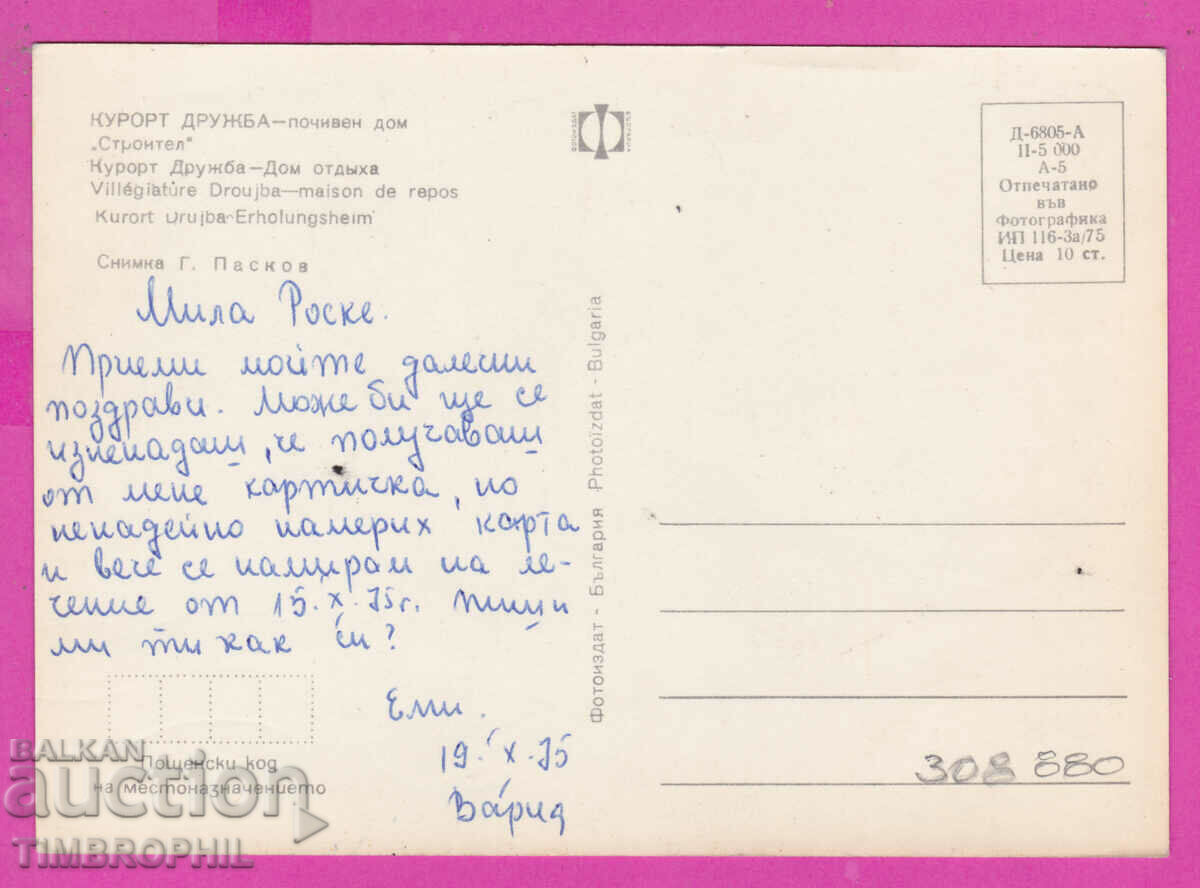 КУРОРТ ДРУЖБА—почивен дом
„Строител"
Курорт Дружба—Дом отдыха
Villégiature Droujba—maison de repos
Kurort Drujba-Erholungsheim
Снимка Г. Пасков
Мила Роске.
Приеми мойте далечни
поздрави. Може би ще се
изненадаш, че получаваш
от мене картичка, но
ненадейно намерих карта
и вече се намирам на ле-
чение от 15.X.75г. пиши
ми ти как си?
Ели.
19.X.75
Пощенски код
на местоназначението
Фотоиздат - България Photoizdat - Bulgaria
Д-6805-А
II-5 000
А-5
Отпечатано
във
Фотографика
ИП 116-За/75
Цена 10 ст.
308 880
BALKAN
auction
TIMBROPHIL